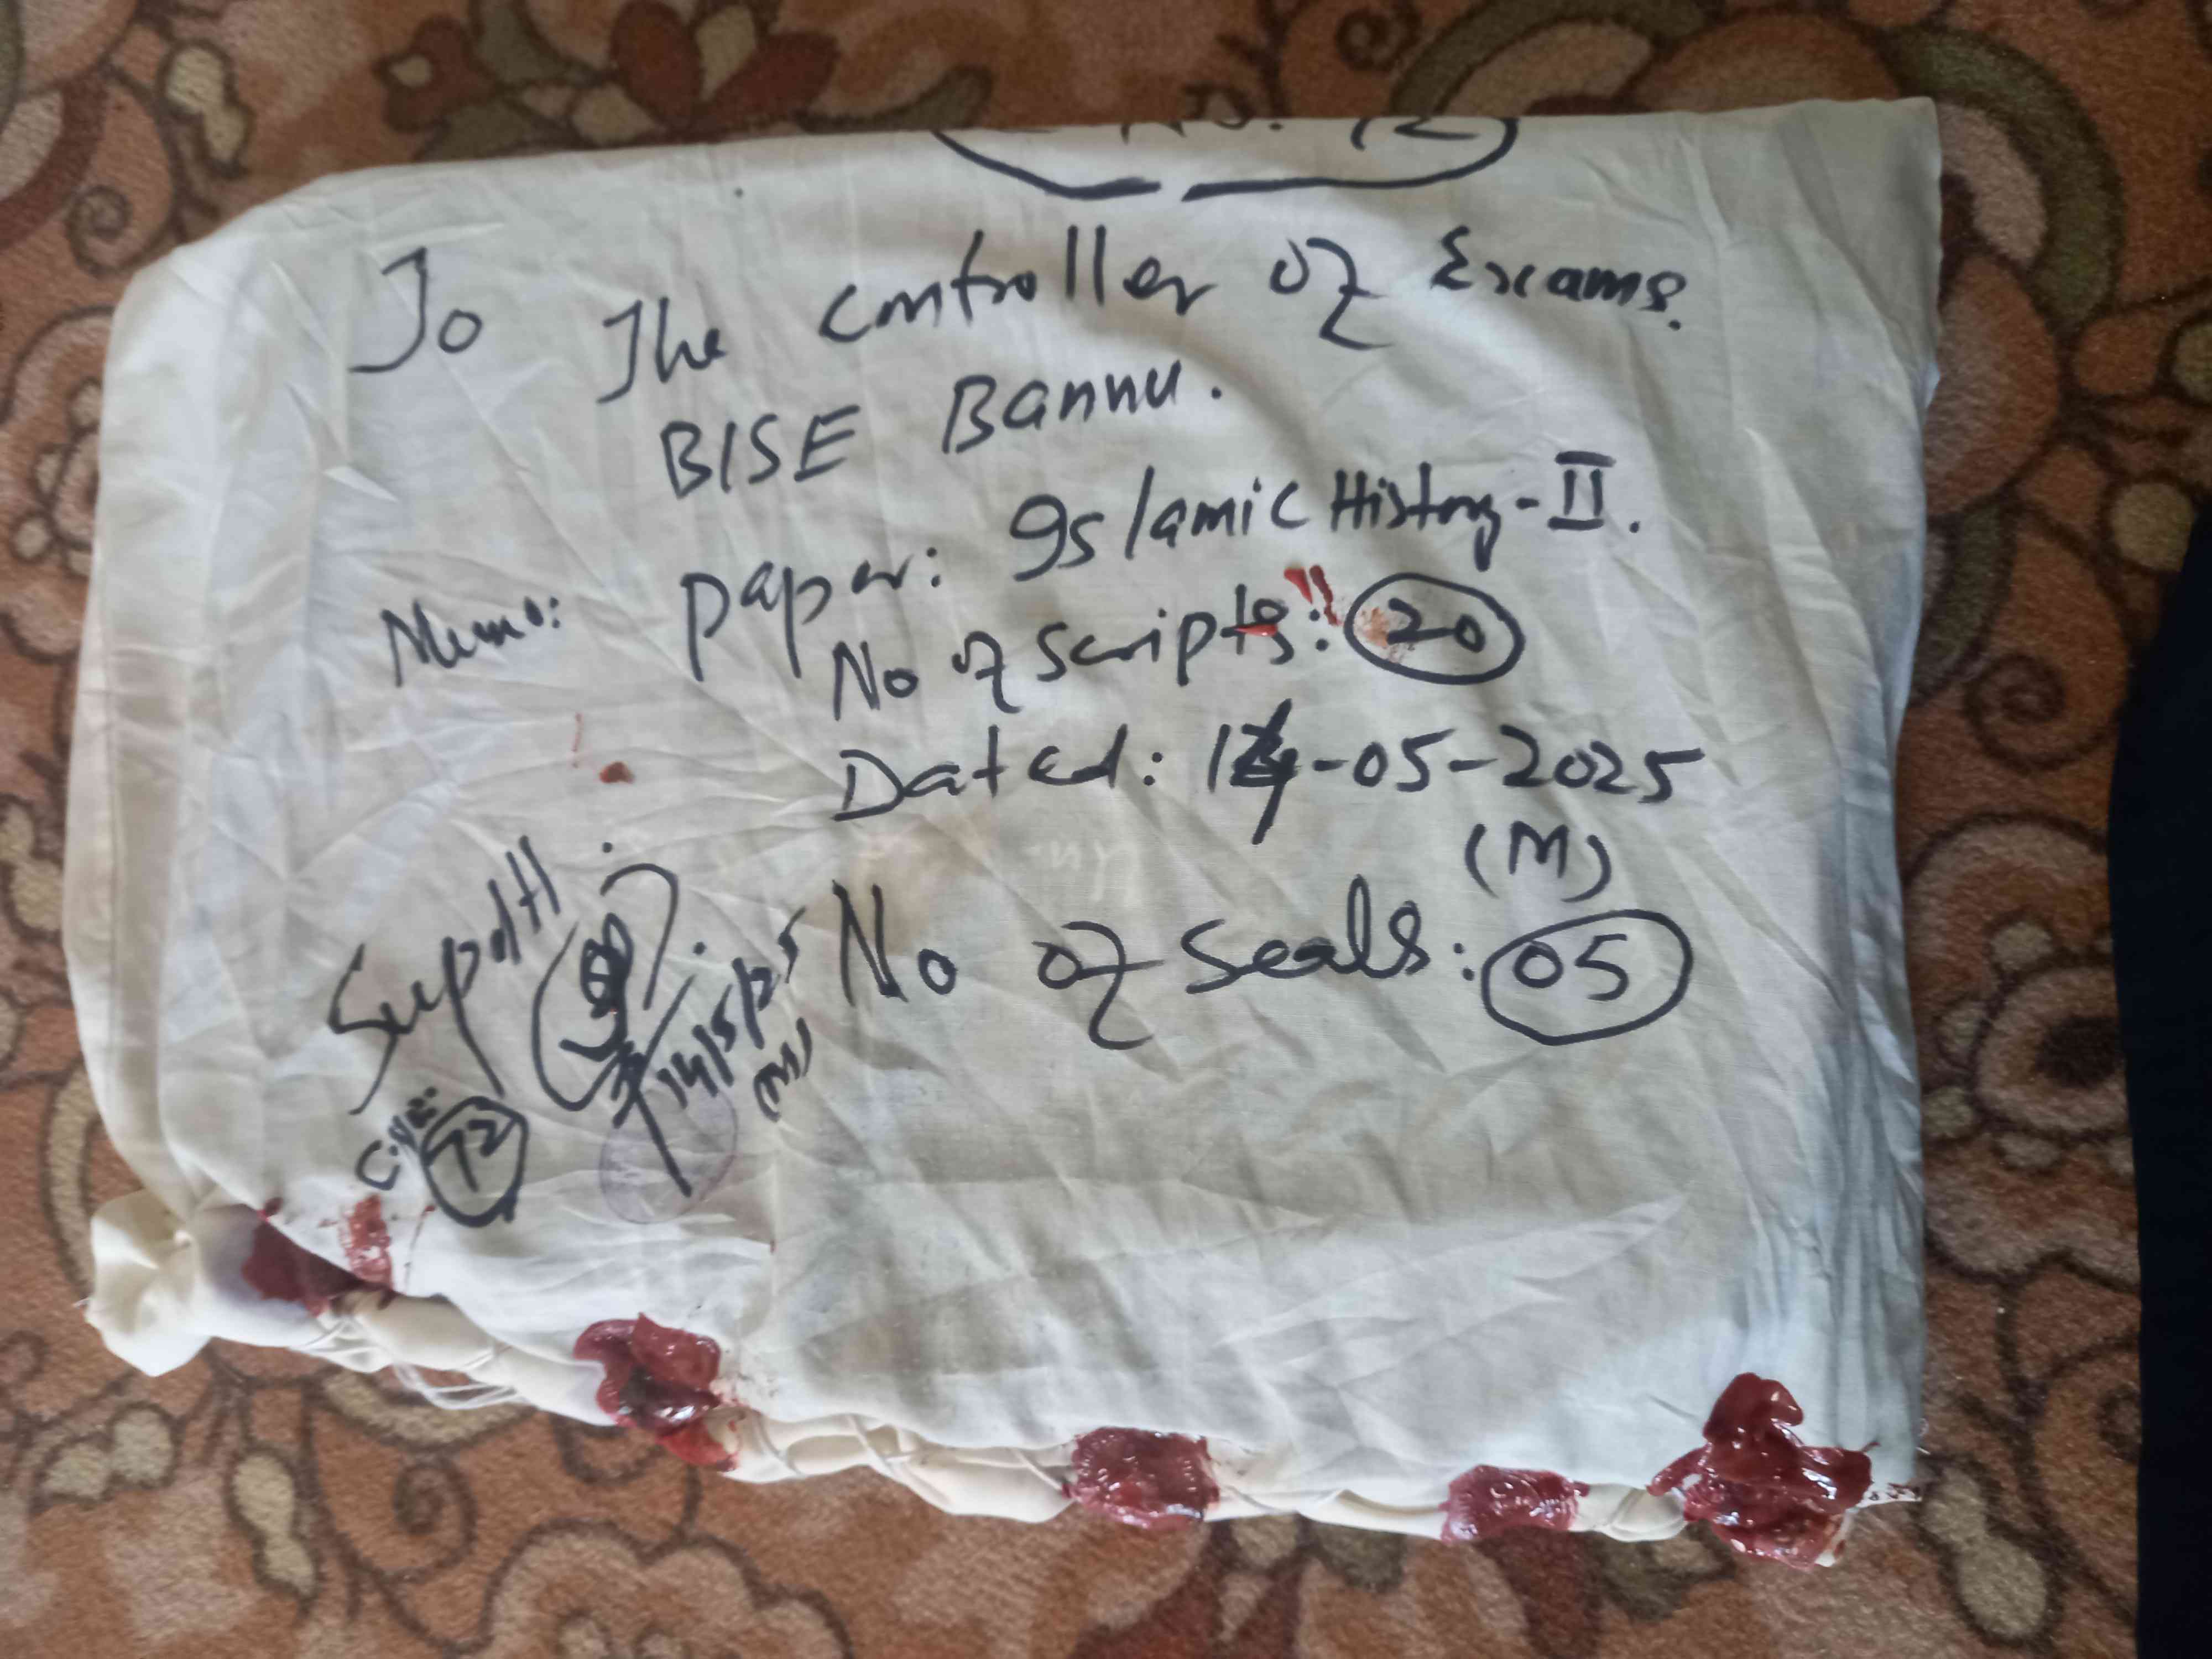 No. 12
To The Controller of Exams.
BISE Bannu.
Memo: Paper: Islamic History-II.
No of Scripts: 20
Dated: 14-05-2025
(M)
No of Seals: 05
Supdtt
14/5/25
(M)
12